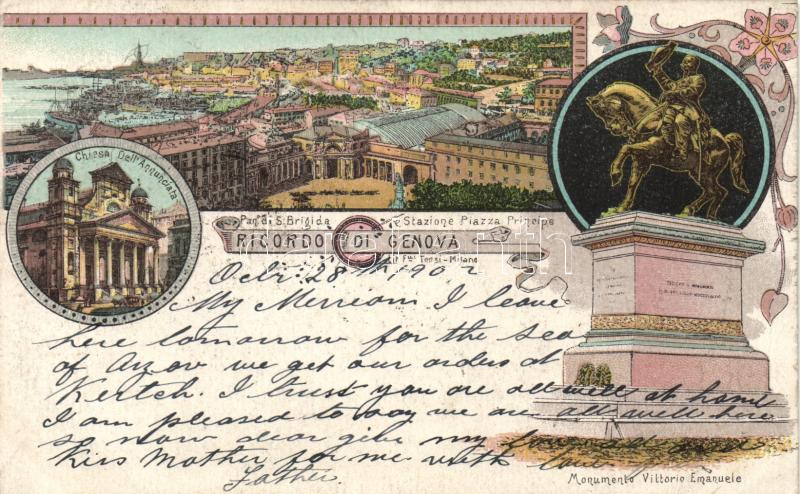 Chiesa Dell'Annunciata
Pan. di S. Brigida
Stazione Piazza Principe
RICORDO DI GENOVA
Tensi - Milano
Octr 28th 1902
My Merriam I leave
here tomorrow for the Sea
of Azov we get our orders at
Kertch. I trust you are all well at home
I am pleased to say we are all well here
so now dear give my
Kiss Mother for me with love
Father.
Monumento Vittorio Emanuele